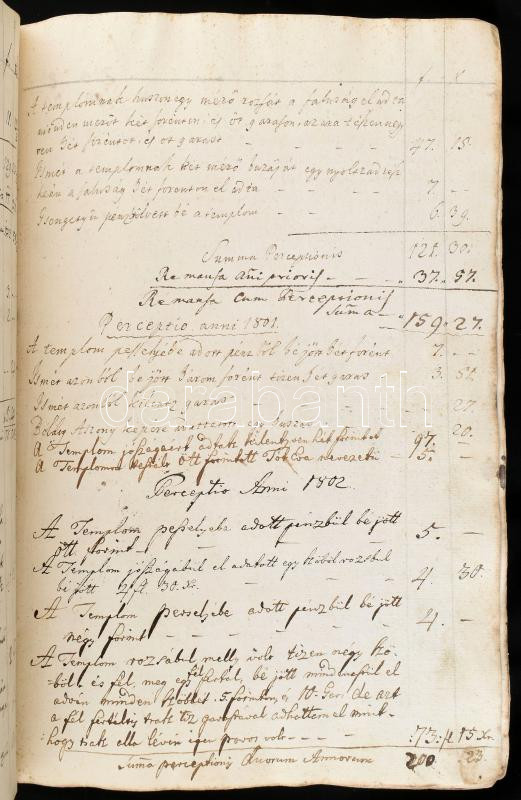 f x
A templomnak huszonegy mérő rozsát a falusság el adta
minden mérőt két forénton és öt garason, azara tészen negy
ven hét forentot és öt garast - - - 47. 15.
Ismét a templomnak két mérő buzáját egy nyolczad rész
a falusság hét forenton el adta - - - 7. - -
pénz bé a templom - - - 6. 39.
Summa Perceptionis 121. 30.
Remansa Añi prioris - - - 37. 57.
Remansa Cum Perceptionis
Suma - 159. 27.
Perceptio anni 1801.
A templom pesselyébe adott pénzből bé jött hét forént 7. - -
Ismét azonból bé jött három forént tizen hét garas 3. 51.
Ismét azonból kilentz garas - - - 27.
Boldog Aszony képére egy huszas - - 20.
A Templom jószágáért adtak kilentzven hét forintot 97. -
A Templomra öt forintott nevezeti - 5. -
Perceptio Anni 1802.
A Templom pesselyebe adott pénzbül bé jött
ött forint - - - 5. -
A Templom jószágábúl el adatott egy köböl rozsbúl
bé jött 4 ft. 30. Xr. 4. 30.
A Templom perselyebe adott pénzbül bé jött
négy forint - - - 4. -
A Templom rozsabúl, melly volt tizen négy kö-
böll és fél, meg egy fél fertaly, bé jött mindenestül el
adván minden Köblét 5 forinton, és 10. Gar. de azt
a fél fertályt tsak tiz garassával adhattem el mint-
hogy tsak ella lévén igen volt - - - 73. f 15 Xr.
Suma perceptionis Duorum Annorum 200. 23.
darabanth